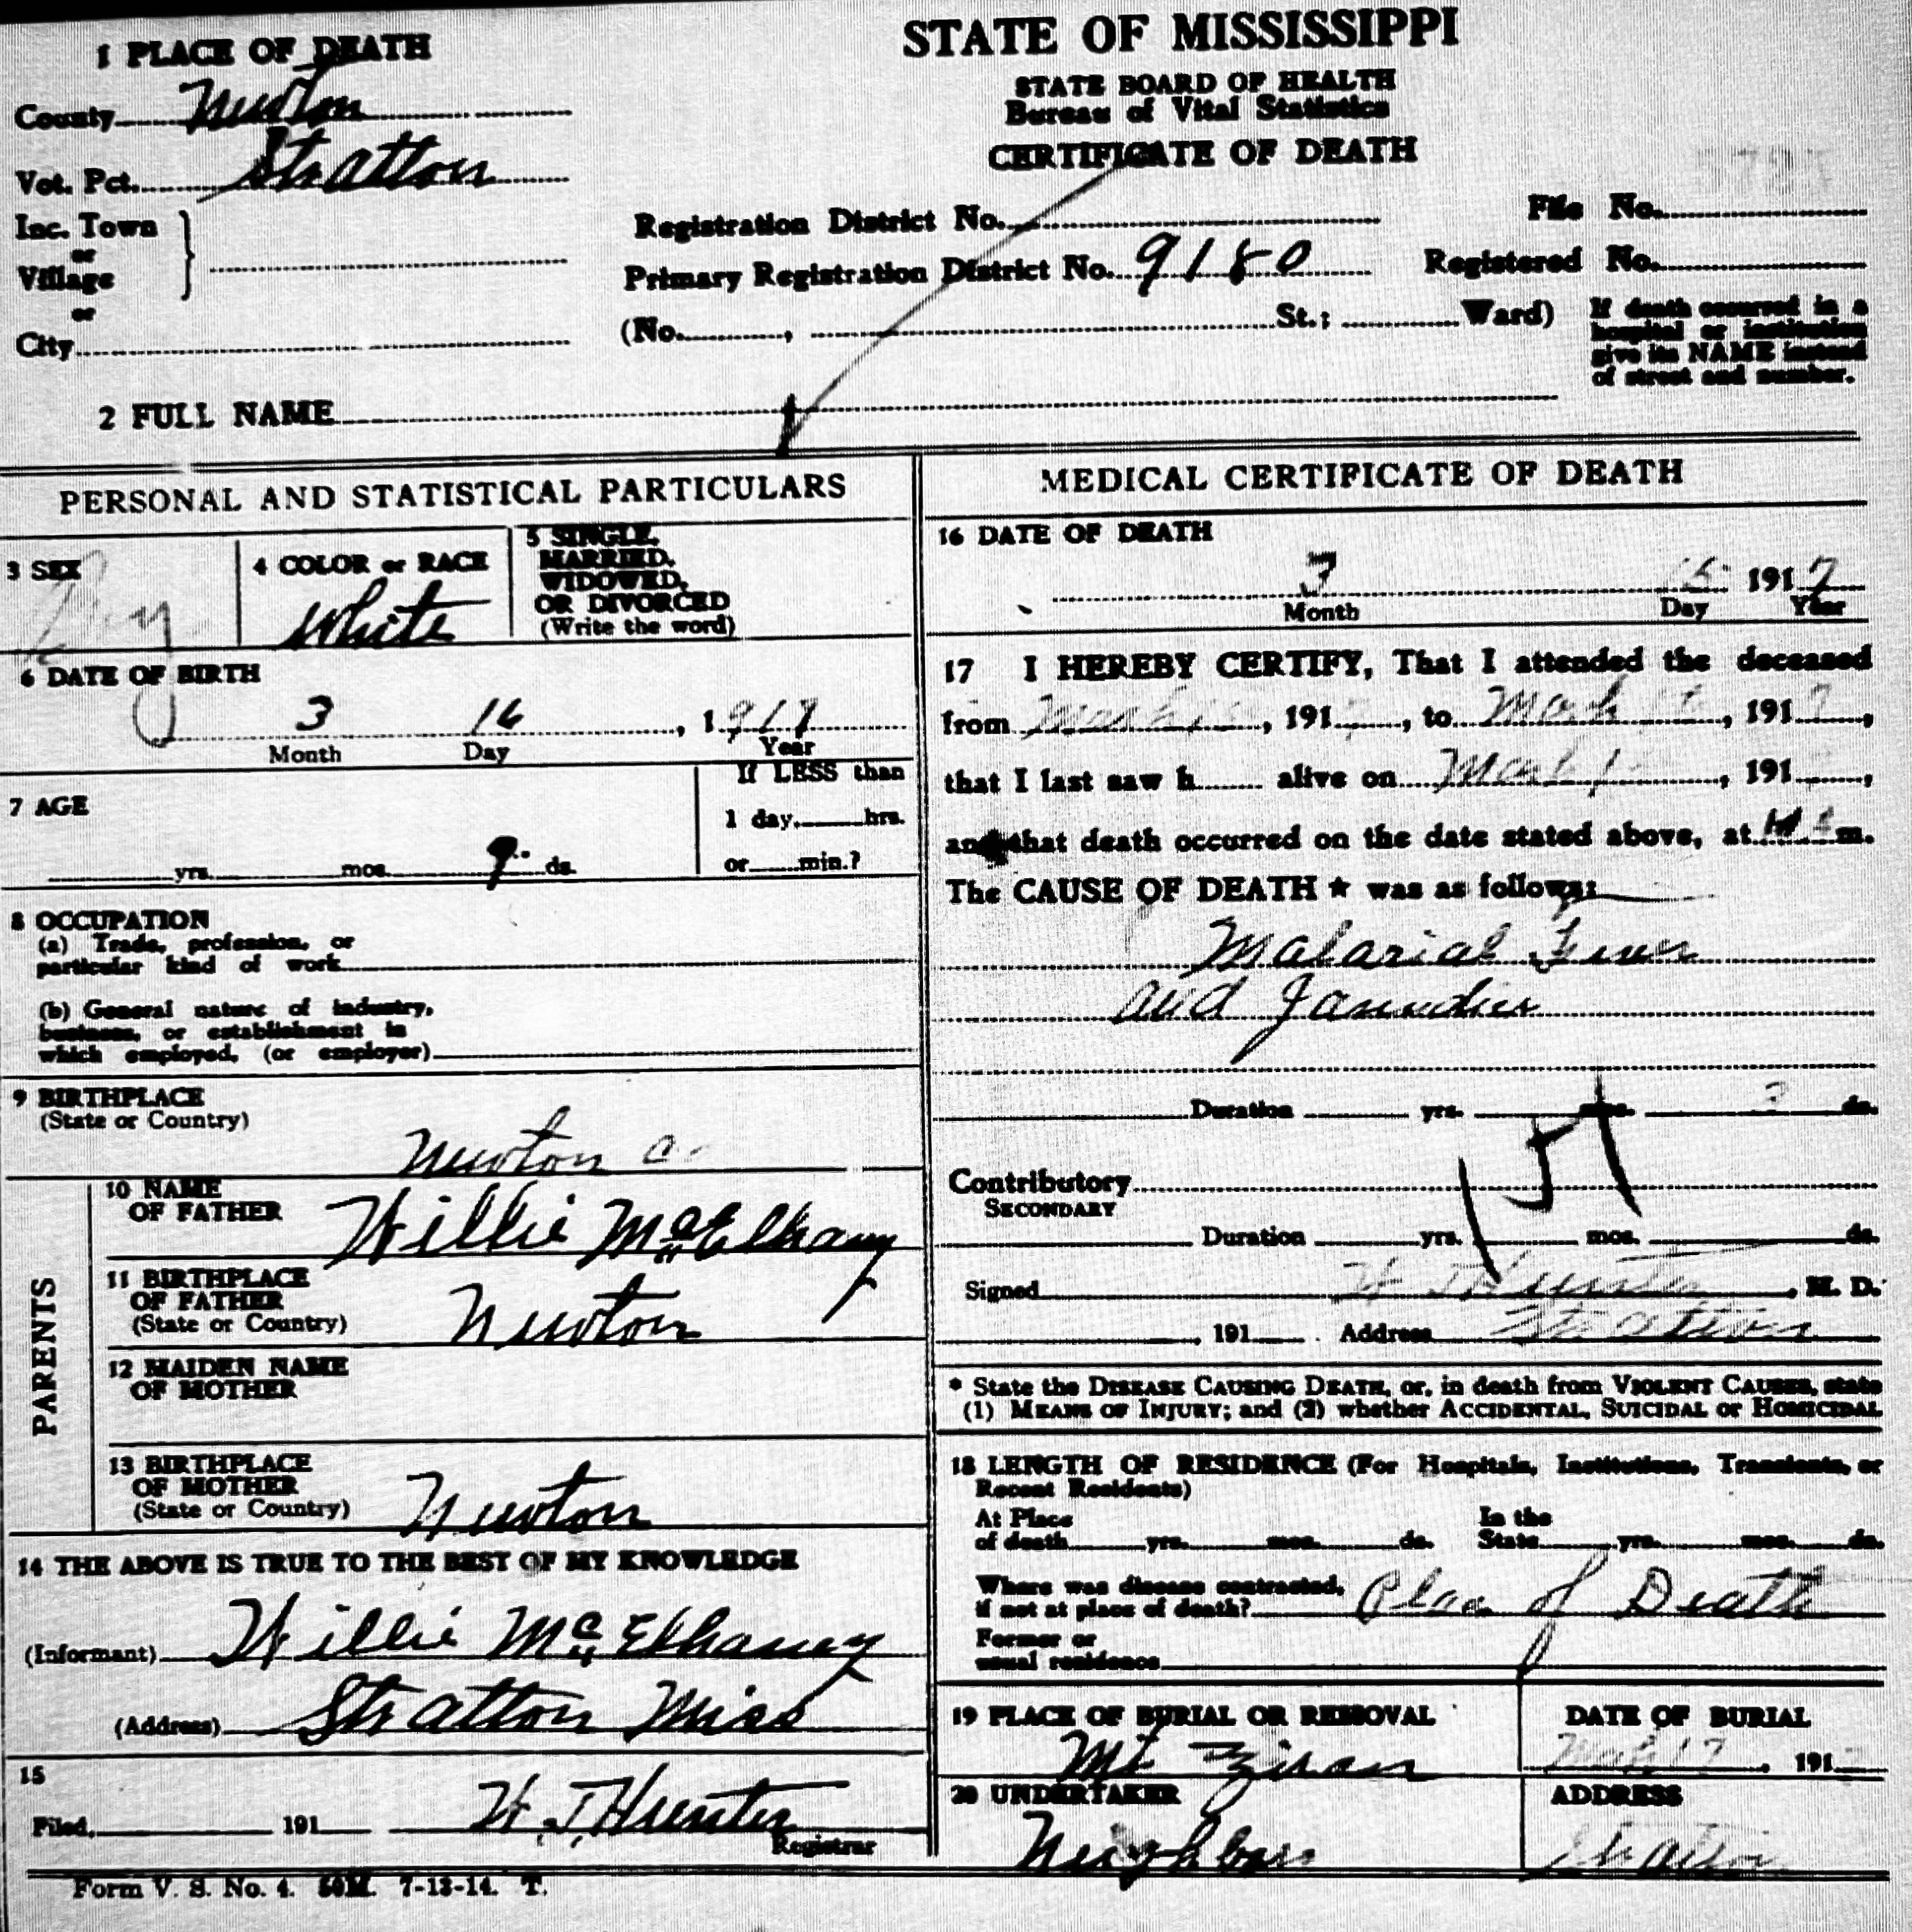 1 PLACE OF DEATH
County Newton
Vot. Pct. Stratton
Inc. Town
or
Village
or
City
STATE OF MISSISSIPPI
STATE BOARD OF HEALTH
Bureau of Vital Statistics
CERTIFICATE OF DEATH
Registration District No. File No.
Primary Registration District No. 9180 Registered No.
(No. , St.; Ward)
If death occurred in a
hospital or institution
give its NAME instead
of street and number.
2 FULL NAME
PERSONAL AND STATISTICAL PARTICULARS
3 SEX
Boy
4 COLOR or RACE
White
5 SINGLE,
MARRIED,
WIDOWED,
OR DIVORCED
(Write the word)
6 DATE OF BIRTH
3 16 , 1917
Month Day Year
7 AGE
yrs. mos. 9 ds.
If LESS than
1 day, hrs.
or min.?
8 OCCUPATION
(a) Trade, profession, or
particular kind of work
(b) General nature of industry,
business, or establishment in
which employed, (or employer)
9 BIRTHPLACE
(State or Country)
Newton
PARENTS
10 NAME
OF FATHER Willie McElhany
11 BIRTHPLACE
OF FATHER
(State or Country) Newton
12 MAIDEN NAME
OF MOTHER
13 BIRTHPLACE
OF MOTHER
(State or Country) Newton
14 THE ABOVE IS TRUE TO THE BEST OF MY KNOWLEDGE
(Informant) Willie McElhaney
(Address) Stratton Miss
15
Filed, 191 W. J. Hunter
Registrar
Form V. S. No. 4. 50M. 7-13-14. T.
MEDICAL CERTIFICATE OF DEATH
16 DATE OF DEATH
3 15 1917
Month Day Year
17 I HEREBY CERTIFY, That I attended the deceased
from March , 191 , to March , 1917,
that I last saw h alive on March , 191 ,
and that death occurred on the date stated above, at m.
The CAUSE OF DEATH * was as follows:
Malarial Fever
and Jaundice
Duration yrs. mos. 3 ds.
Contributory
SECONDARY
Duration yrs. mos. ds.
Signed W J Hunter , M. D.
, 191 Address Stratton
* State the DISEASE CAUSING DEATH, or, in death from VIOLENT CAUSES, state
(1) MEANS OF INJURY; and (2) whether ACCIDENTAL, SUICIDAL or HOMICIDAL
18 LENGTH OF RESIDENCE (For Hospitals, Institutions, Transients, or
Recent Residents)
At Place In the
of death yrs. mos. ds. State yrs. mos. ds.
Where was disease contracted,
if not at place of death? Place of Death
Former or
usual residence
19 PLACE OF BURIAL OR REMOVAL
Mt Zion
DATE OF BURIAL
March 17 , 191
20 UNDERTAKER
Neighbors
ADDRESS
Stratton